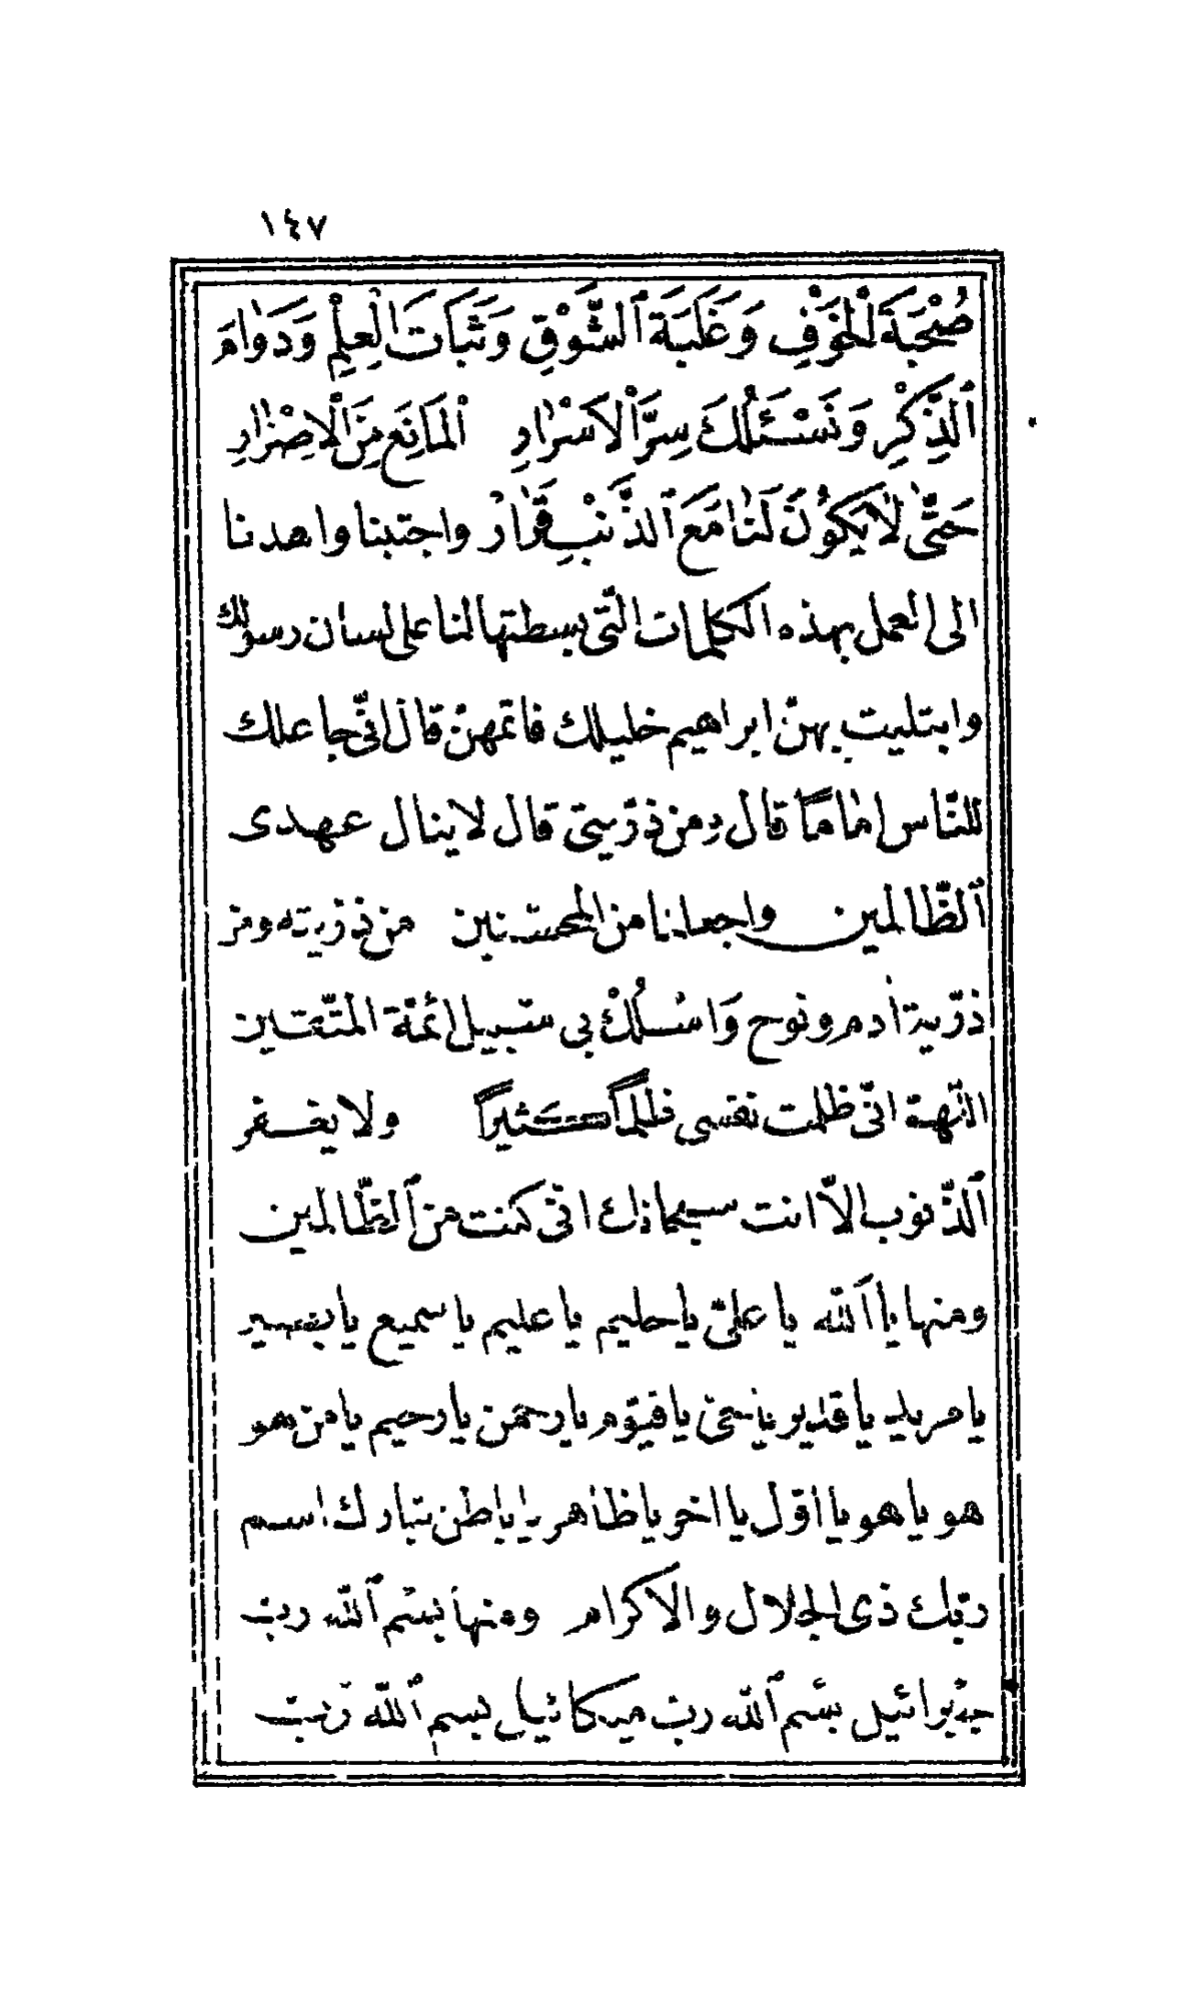 ١٤٧
صُحْبَةَ لْخَوْفِ وَغَلَبَةَ ٱلشَّوْقِ وَثَبَاتَ الْعِلْمِ وَدَوٰامَ
ٱلذِّكْرِ وَنَسْئَلُكَ سِرَّ اْلاَسْرٰارِ اْلمَانِعَ مِنَ اْلاِصْرٰارِ
حَتّٰى لاٰيَكُونَ لَنٰا مَعَ ٱلذَّنْبِ قَرٰارٌ واجتبنا واهدنا
الى العمل بهذه الكلمات الّتى بسطتها لنا على لسان رسولك
وابتليت بهنّ ابراهيم خليلك فاتمّهنّ قال انّى جاعلك
للنّاس امٰامًا قال ومن ذرّيتى قال لاينال عهدى
ٱلظّالمين واجعلنا من المحسنين من ذرّيته ومن
ذرّية اٰدم ونوح وَاسْلُكْ بى سبيل ائمّة المتّقين
اللّهمّ انّى ظلمت نفسى ظلمًا كَثيرًا ولا يغفر
ٱلذّنوب الاّ انت سبحانك انّى كنت من ٱلظّالمين
ومنها يا اَللّٰه يا علىّ يا حليم يا عليم يا سميع يا بصير
يا مريد يا قدير يا حىّ يا قيّوم يا رحمٰن يا رحيم يا من هو
هو يا هو يا اوّل يا اٰخر يا ظاهر يا باطن تبارك اسم
ربّك ذى الجلال والاكرام ومنها بسْم ٱللّٰه ربّ
جبرائيل بسْم ٱللّٰه ربّ ميكائيل بسم ٱللّٰه ربّ